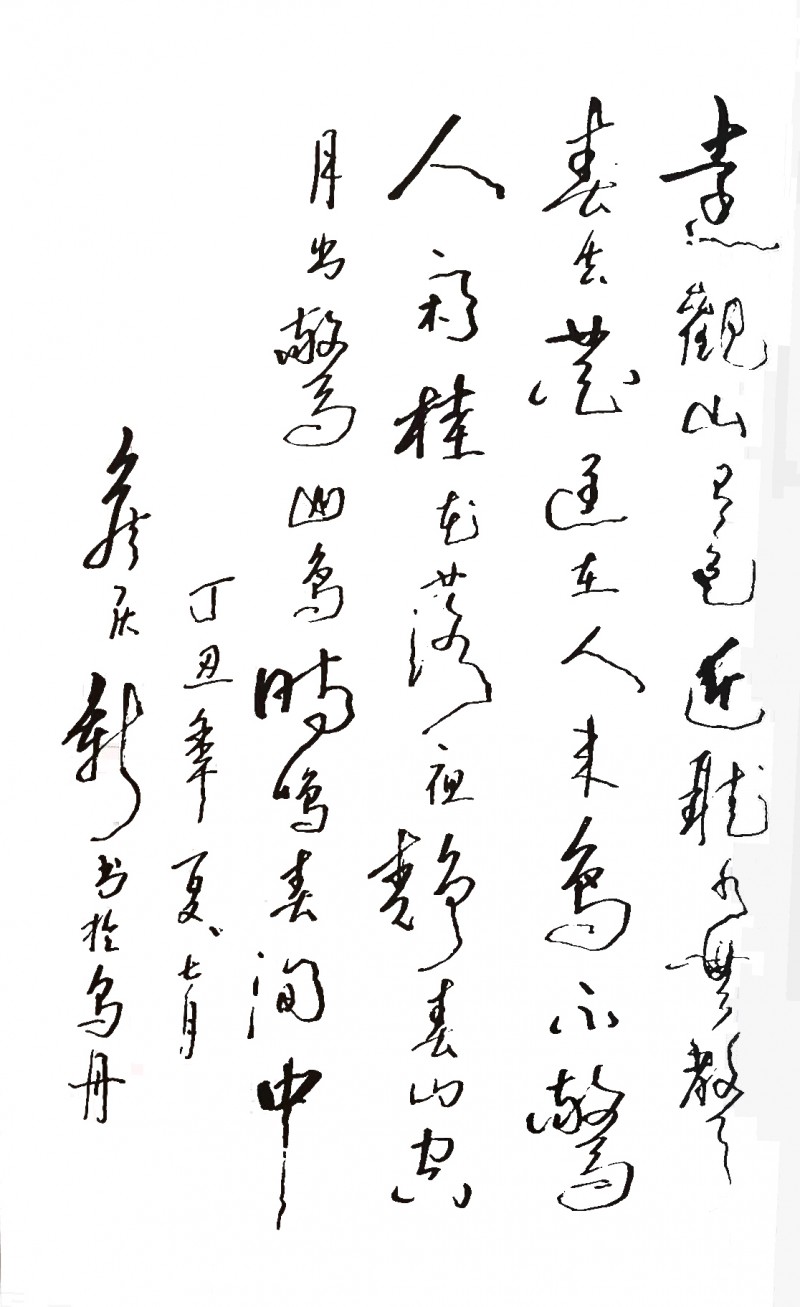 遠觀山有色近聽水無聲
春去花還在人來鳥不驚
人閑桂花落夜靜春山空
月出驚山鳥時鳴春澗中
丁丑年夏七月
新书於乌丹